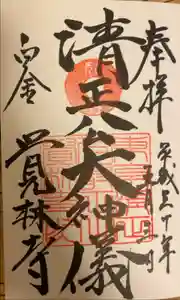 奉拝
平成三十年
清正公大神儀
白金
覚林寺